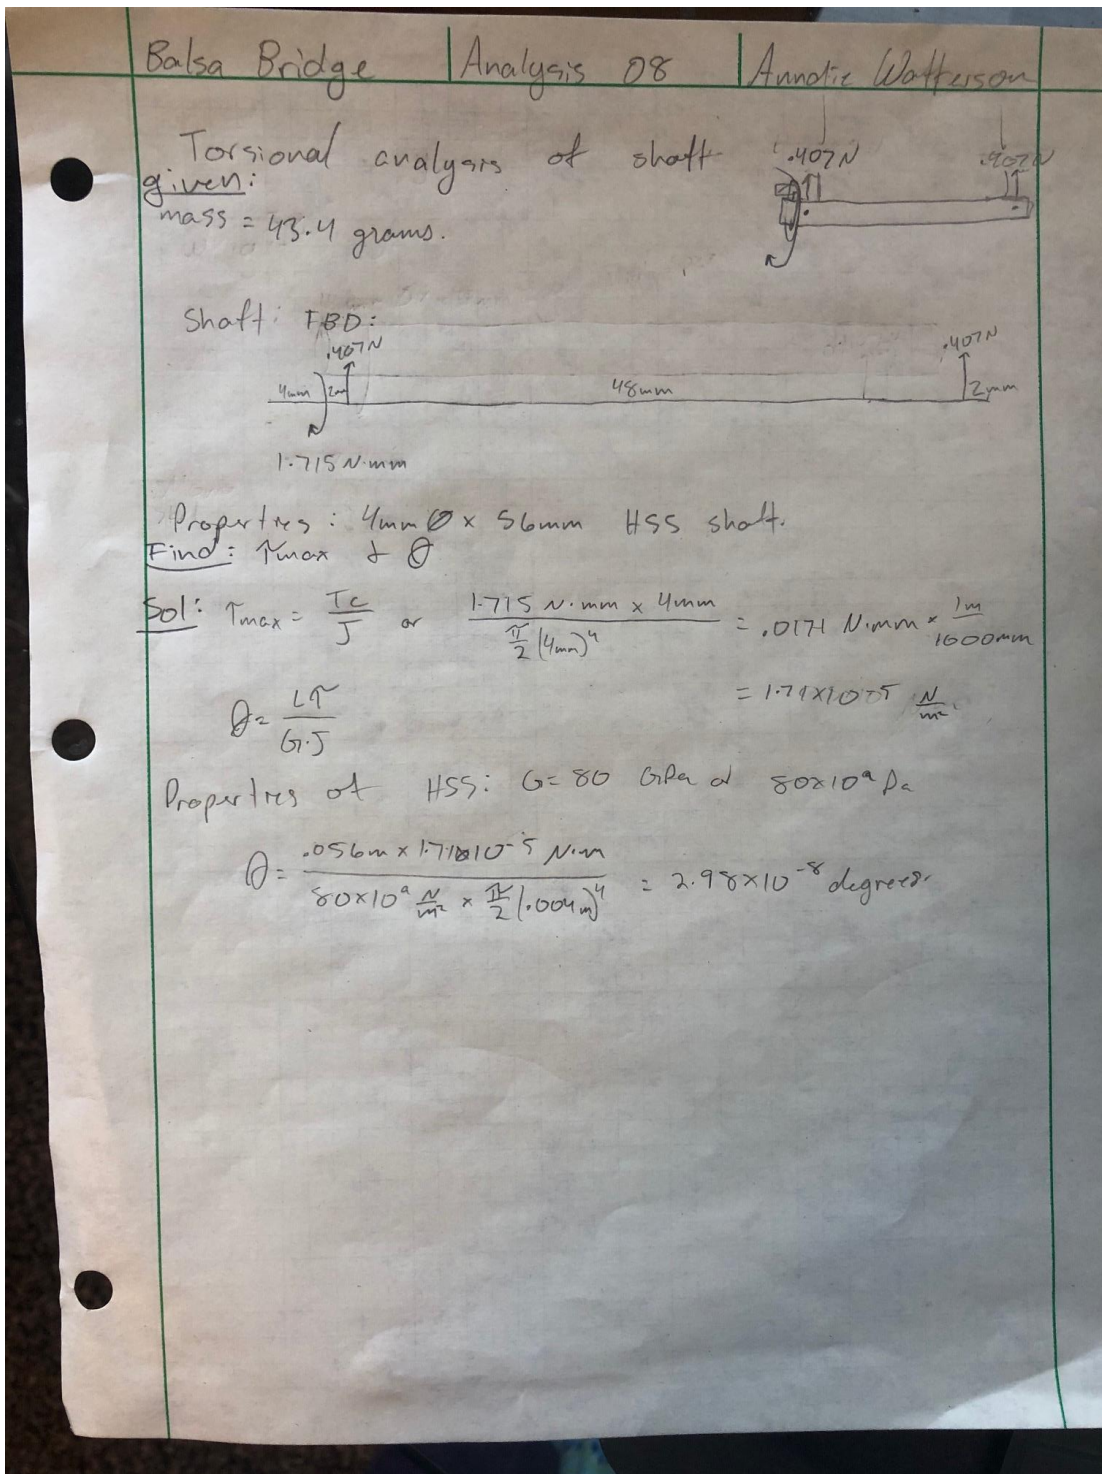 Balsa Bridge | Analysis 08 | Annotie Watterson
Torsional analysis of shaft
given:
mass = 43.4 grams.
.407N .407N
Shaft: FBD:
.407N .407N
4mm 2mm 48mm 2mm
1.715 N·mm
Properties: 4mm Ø x 56mm HSS shaft.
Find: τmax & θ
Sol: τmax = Tc/J or 1.715 N·mm x 4mm / π/2 (4mm)^4 = .0171 N·mm x 1m/1000mm
= 1.71x10^-5 N/m²
θ = Lτ/G·J
Properties of HSS: G= 80 GPa or 80x10^9 Pa
θ = .056m x 1.71x10^-5 N·m / 80x10^9 N/m² x π/2 (.004m)^4 = 2.98x10^-8 degrees.